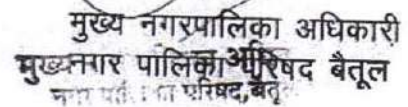 मुख्य नगरपालिका अधिकारी
मुख्य नगर पालिका परिषद बैतूल
परिषद, बैतू